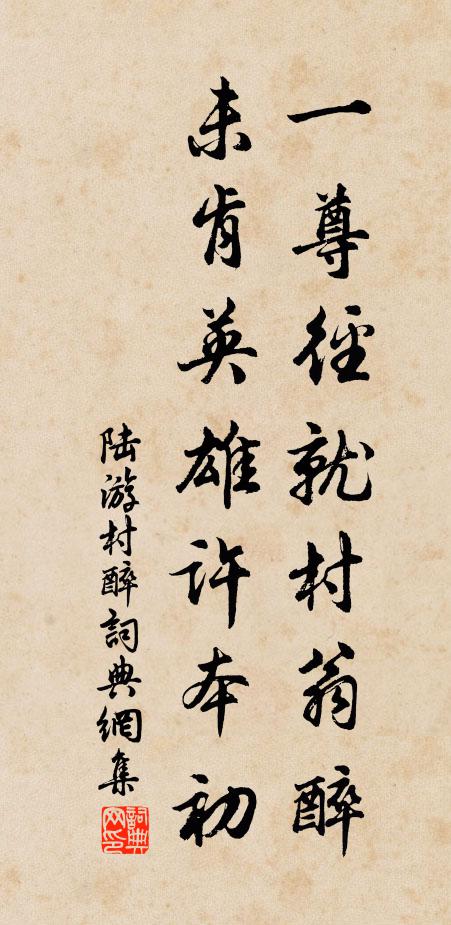 一尊徑就村翁醉
未肯英雄許本初
陆游村醉詞典網集
詞典网印